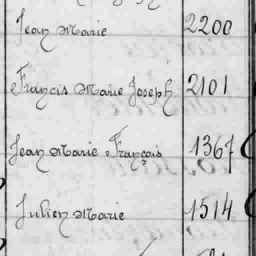 Jean Marie 2200
Francis Marie Joseph 2101
Jean Marie François 1367
Julien Marie 1514